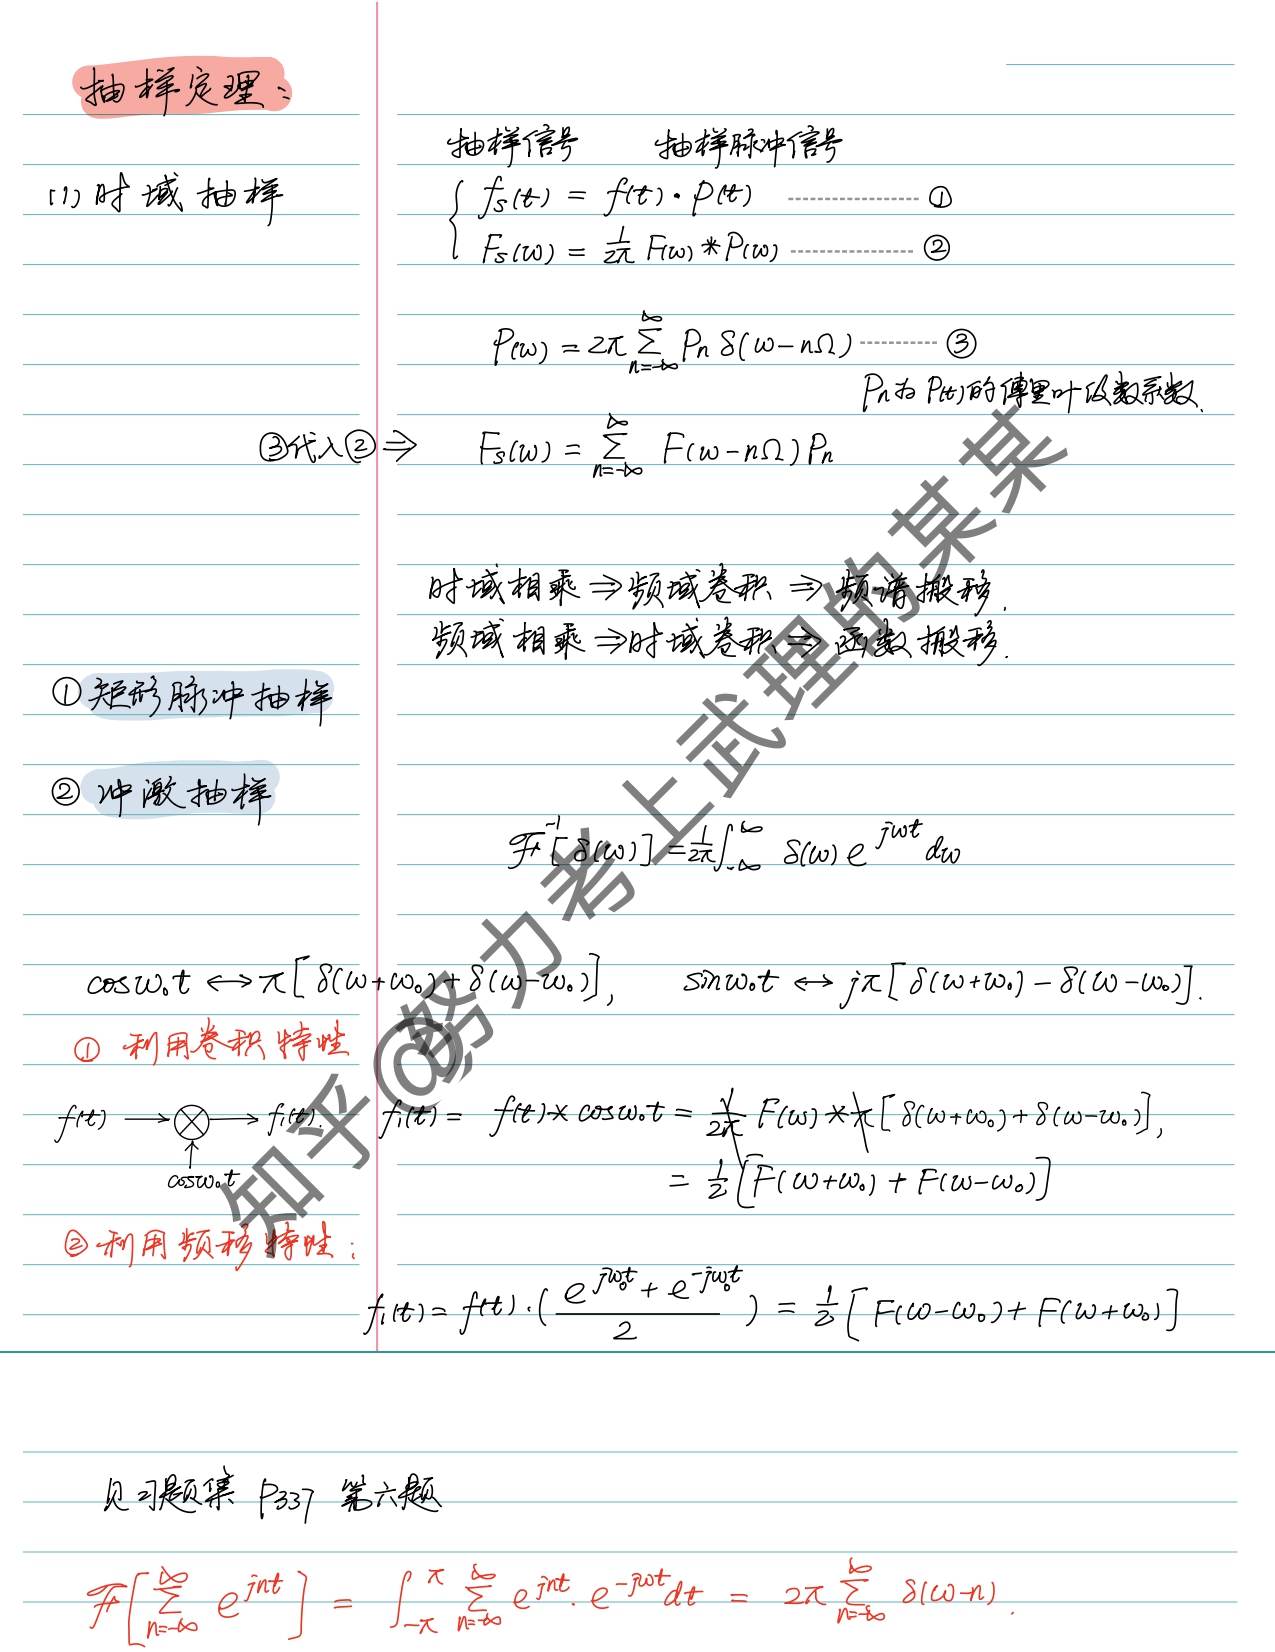 抽样定理：
抽样信号 抽样脉冲信号
(1) 时域抽样
fs(t) = f(t)·P(t) ------------ ①
Fs(ω) = 1/2π F(ω) * P(ω) ------------ ②
P(ω) = 2π ∑_{n=-∞}^{∞} Pn δ(ω-nΩ) ------------ ③
Pn为P(t)的傅里叶级数系数.
③代入② ⇒ Fs(ω) = ∑_{n=-∞}^{∞} F(ω-nΩ) Pn
时域相乘 ⇒ 频域卷积 ⇒ 频谱搬移.
频域相乘 ⇒ 时域卷积 ⇒ 函数搬移.
① 矩形脉冲抽样
② 冲激抽样
ℱ⁻¹[δ(ω)] = 1/2π ∫_{-∞}^{∞} δ(ω) e^{jωt} dω
cosω₀t ↔ π[δ(ω+ω₀)+δ(ω-ω₀)], sinω₀t ↔ jπ[δ(ω+ω₀)-δ(ω-ω₀)].
① 利用卷积特性
f(t) → ⊗ → f₁(t).
cosω₀t
f₁(t) = f(t) × cosω₀t = 1/2π F(ω) * π[δ(ω+ω₀)+δ(ω-ω₀)],
= 1/2 [F(ω+ω₀) + F(ω-ω₀)]
② 利用频移特性：
f₁(t) = f(t)·( (e^{jω₀t} + e^{-jω₀t}) / 2 ) = 1/2 [F(ω-ω₀) + F(ω+ω₀)]
见习题集 P337 第六题
ℱ[∑_{n=-∞}^{∞} e^{jnt}] = ∫_{-π}^{π} ∑_{n=-∞}^{∞} e^{jnt}·e^{-jωt} dt = 2π ∑_{n=-∞}^{∞} δ(ω-n).
知乎@努力考上武理的某某